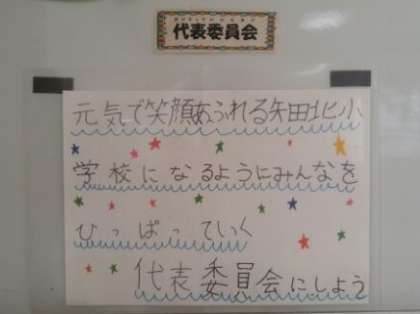 代表委員会
元気で笑顔あふれる矢田北小
学校になるようにみんなを
ひっぱっていく
代表委員会にしよう